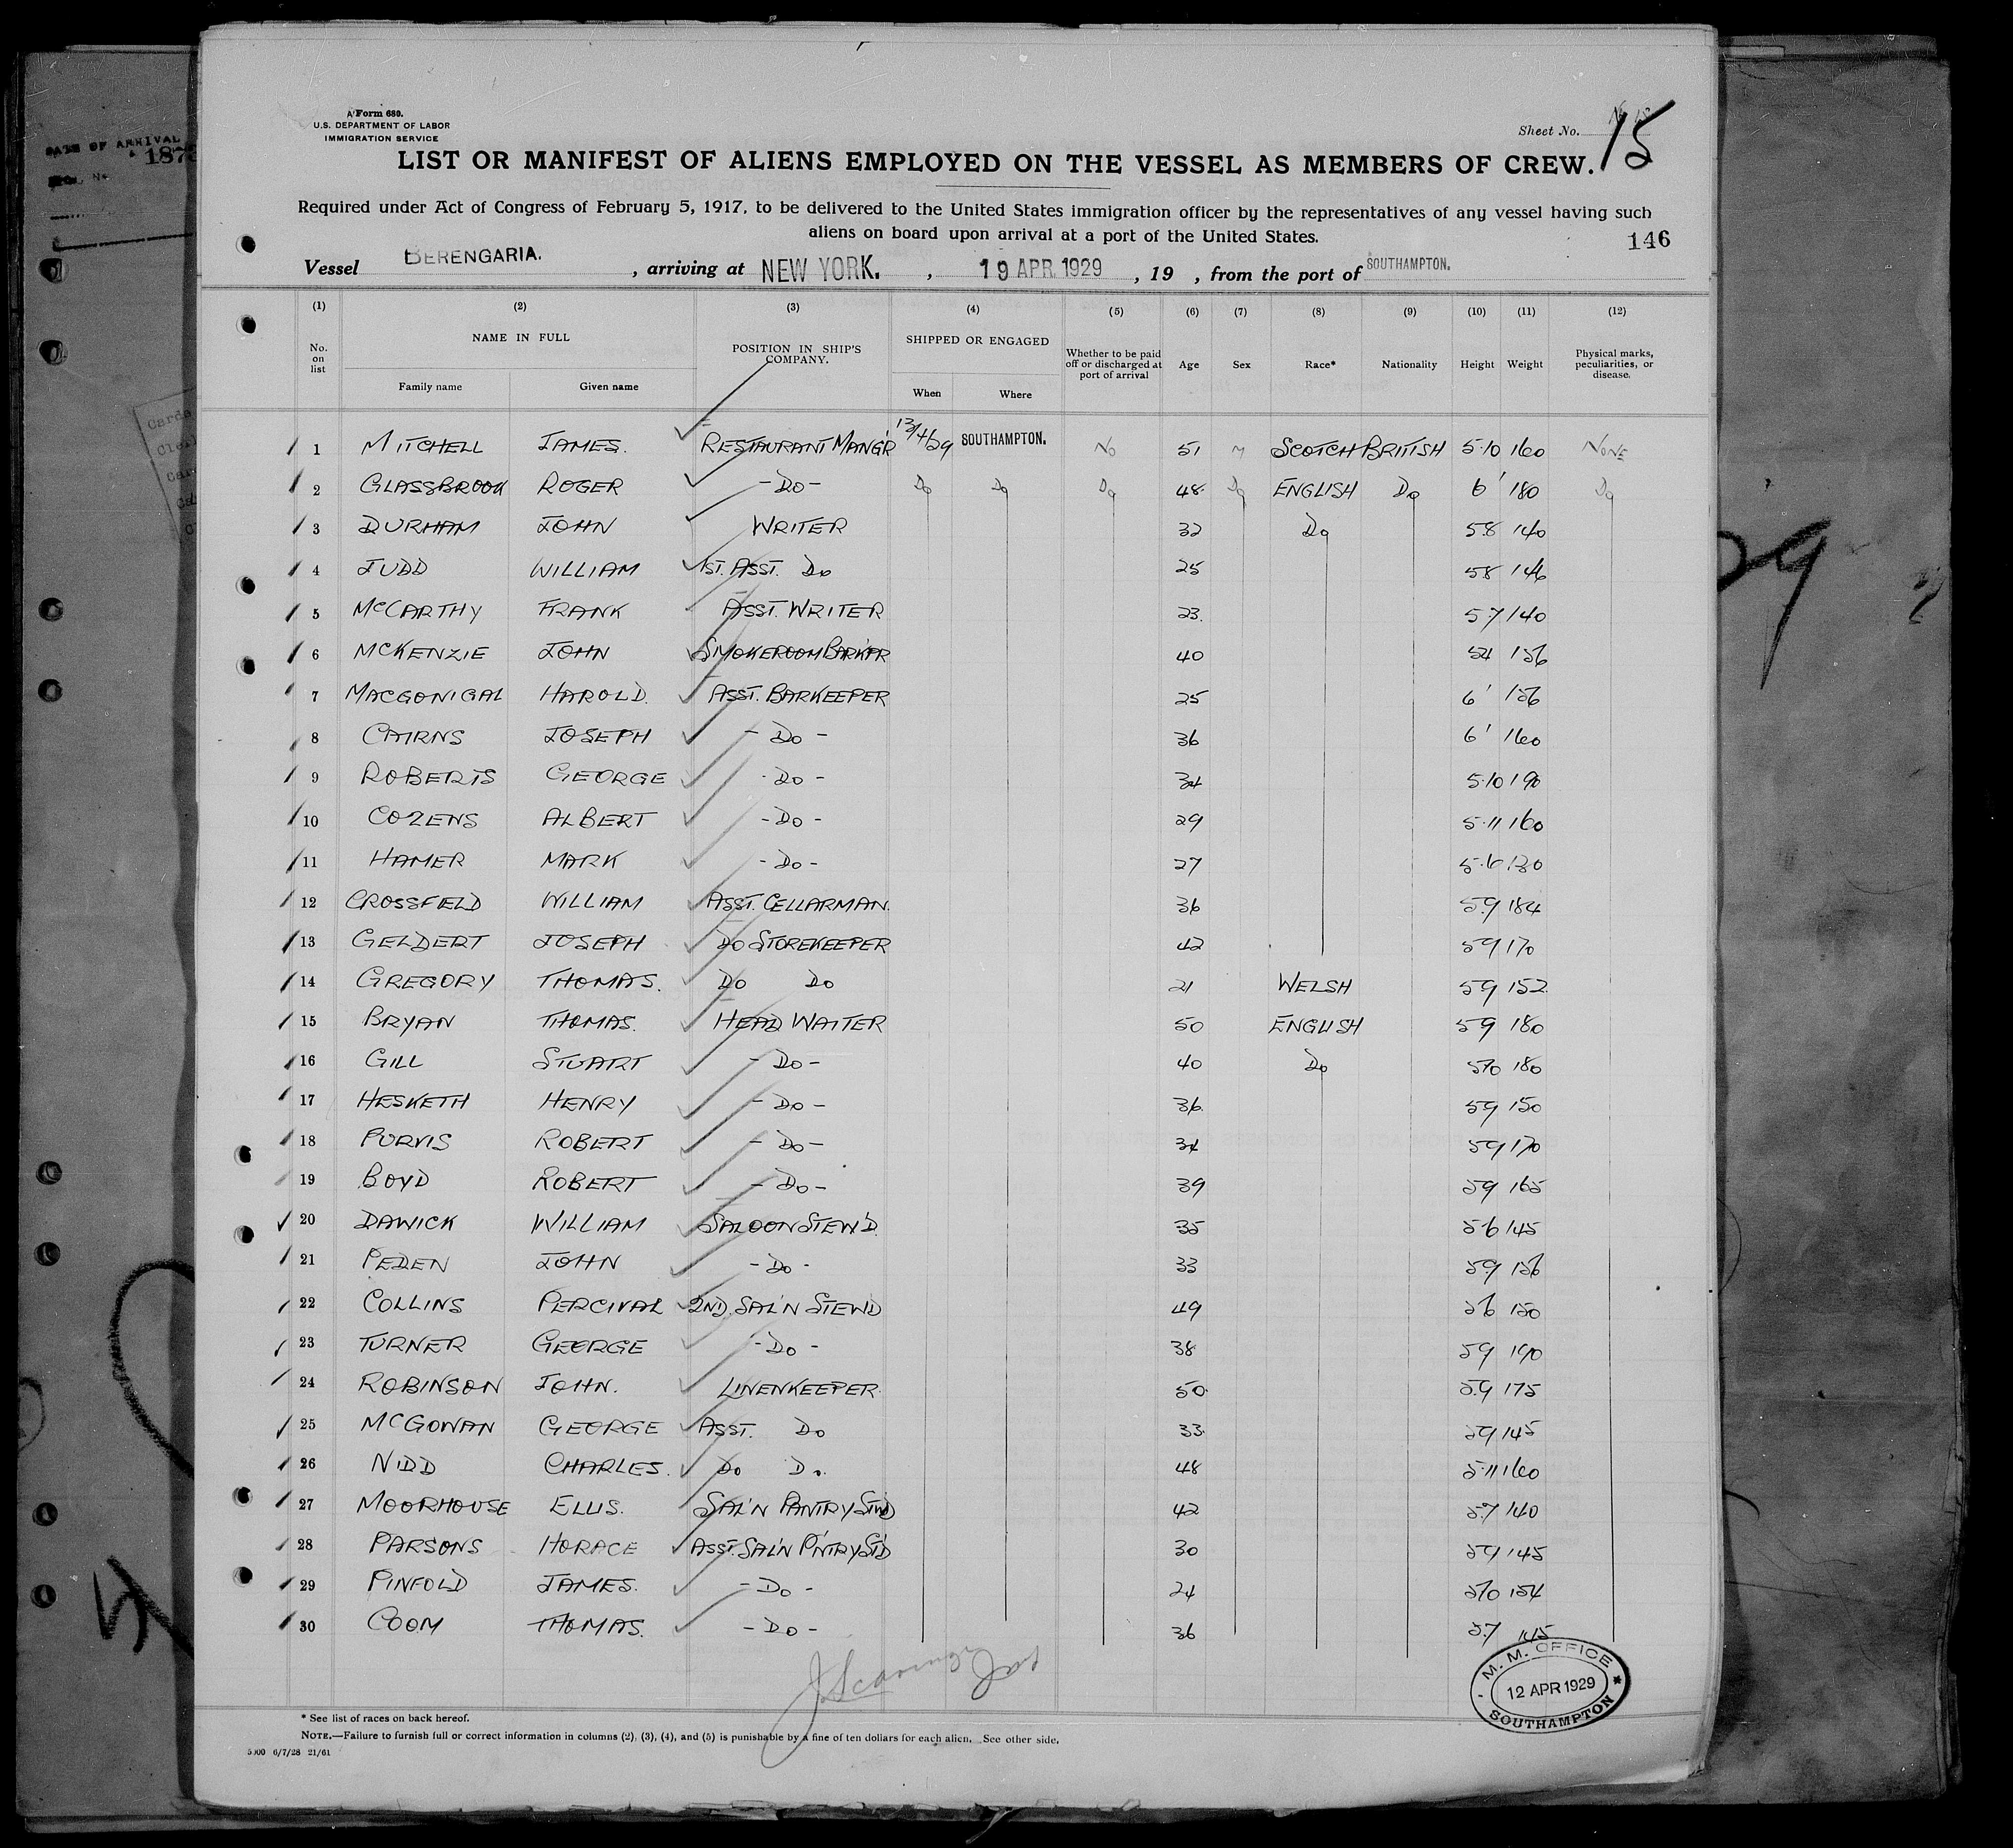 DATE OF ARRIVAL
1875
Form 680.
U.S. DEPARTMENT OF LABOR
IMMIGRATION SERVICE
Sheet No. 15
LIST OR MANIFEST OF ALIENS EMPLOYED ON THE VESSEL AS MEMBERS OF CREW.
Required under Act of Congress of February 5, 1917, to be delivered to the United States immigration officer by the representatives of any vessel having such
aliens on board upon arrival at a port of the United States.
146
Vessel BERENGARIA. , arriving at NEW YORK. , 19 APR 1929 , 19 , from the port of SOUTHAMPTON.
(1) (2) (3) (4) (5) (6) (7) (8) (9) (10) (11) (12)
No. on list NAME IN FULL POSITION IN SHIP'S COMPANY. SHIPPED OR ENGAGED Whether to be paid off or discharged at port of arrival Age Sex Race* Nationality Height Weight Physical marks, peculiarities, or disease.
Family name Given name When Where
1 MITCHELL JAMES. RESTAURANT MANG'R 13/4/29 SOUTHAMPTON. No 51 M SCOTCH BRITISH 5·10 160 NONE
2 GLASSBROOK ROGER -Do- Do Do Do 48 Do ENGLISH Do 6' 180 Do
3 DURHAM JOHN WRITER 32 Do 5.8 140
4 JUDD WILLIAM 1ST. ASST. Do 25 58 146
5 McCARTHY FRANK ASST. WRITER 23. 5.7 140
6 McKENZIE JOHN SMOKEROOM BARK'PR 40 54 156
7 MACGONIGAL HAROLD. ASST. BARKEEPER 25 6' 156
8 CAIRNS JOSEPH - Do - 36 6' 160
9 ROBERTS GEORGE - Do - 34 5·10 190
10 COZENS ALBERT - Do - 29 5·11 160
11 HAMER MARK - Do - 27 5·6 130
12 CROSSFIELD WILLIAM ASST. CELLARMAN. 36 5.9 184
13 GELDERT JOSEPH DO STOREKEEPER 42 59 170
14 GREGORY THOMAS. Do Do 21 WELSH 59 152
15 BRYAN THOMAS. HEAD WAITER 50 ENGLISH 59 180
16 GILL STUART - Do - 40 Do 510 180
17 HESKETH HENRY - Do - 36. 59 150
18 PURVIS ROBERT - Do - 34 59 170
19 BOYD ROBERT - Do - 39 59 165
20 DAWICK WILLIAM SALOON STEW'D. 35 56 145
21 PEDEN JOHN - Do - 33 59 156
22 COLLINS PERCIVAL 2ND. SAL'N STEW'D 49 56 150
23 TURNER GEORGE - Do - 38 59 190
24 ROBINSON JOHN. LINENKEEPER. 50 5.9 175
25 McGOWAN GEORGE ASST. Do 33. 59 145
26 NIDD CHARLES. Do Do. 48 5·11 160
27 MOORHOUSE ELLIS. SAL'N PANTRY STW'D 42 5.7 140
28 PARSONS HORACE ASST. SAL'N P'NTRY ST'D 30 59 145
29 PINFOLD JAMES. - Do - 24 510 154
30 COOM THOMAS. - Do - 36 5.7 145
M. M. OFFICE
12 APR 1929
SOUTHAMPTON
* See list of races on back hereof.
NOTE.—Failure to furnish full or correct information in columns (2), (3), (4), and (5) is punishable by a fine of ten dollars for each alien. See other side.
5000 6/7/28 21/61